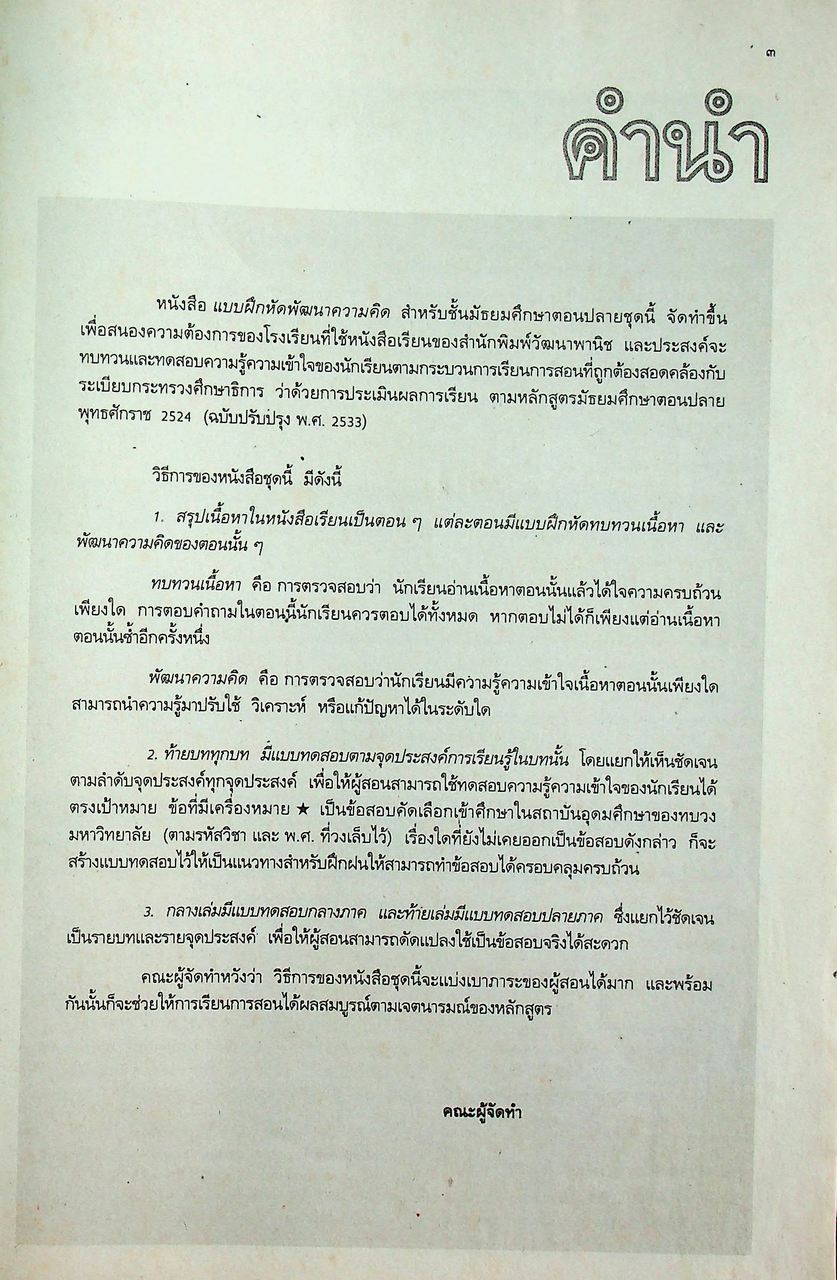 ๓
คำนำ
หนังสือ แบบฝึกหัดพัฒนาความคิด สำหรับชั้นมัธยมศึกษาตอนปลายชุดนี้ จัดทำขึ้น
เพื่อสนองความต้องการของโรงเรียนที่ใช้หนังสือเรียนของสำนักพิมพ์วัฒนาพานิช และประสงค์จะ
ทบทวนและทดสอบความรู้ความเข้าใจของนักเรียนตามกระบวนการเรียนการสอนที่ถูกต้องสอดคล้องกับ
ระเบียบกระทรวงศึกษาธิการ ว่าด้วยการประเมินผลการเรียน ตามหลักสูตรมัธยมศึกษาตอนปลาย
พุทธศักราช 2524 (ฉบับปรับปรุง พ.ศ. 2533)
วิธีการของหนังสือชุดนี้ มีดังนี้
1. สรุปเนื้อหาในหนังสือเรียนเป็นตอน ๆ แต่ละตอนมีแบบฝึกหัดทบทวนเนื้อหา และ
พัฒนาความคิดของตอนนั้น ๆ
ทบทวนเนื้อหา คือ การตรวจสอบว่า นักเรียนอ่านเนื้อหาตอนนั้นแล้วได้ใจความครบถ้วน
เพียงใด การตอบคำถามในตอนนี้นักเรียนควรตอบได้ทั้งหมด หากตอบไม่ได้ก็เพียงแต่อ่านเนื้อหา
ตอนนั้นซ้ำอีกครั้งหนึ่ง
พัฒนาความคิด คือ การตรวจสอบว่านักเรียนมีความรู้ความเข้าใจเนื้อหาตอนนั้นเพียงใด
สามารถนำความรู้มาปรับใช้ วิเคราะห์ หรือแก้ปัญหาได้ในระดับใด
2. ท้ายบททุกบท มีแบบทดสอบตามจุดประสงค์การเรียนรู้ในบทนั้น โดยแยกให้เห็นชัดเจน
ตามลำดับจุดประสงค์ทุกจุดประสงค์ เพื่อให้ผู้สอนสามารถใช้ทดสอบความรู้ความเข้าใจของนักเรียนได้
ตรงเป้าหมาย ข้อที่มีเครื่องหมาย ★ เป็นข้อสอบคัดเลือกเข้าศึกษาในสถาบันอุดมศึกษาของทบวง
มหาวิทยาลัย (ตามรหัสวิชา และ พ.ศ. ที่วงเล็บไว้) เรื่องใดที่ยังไม่เคยออกเป็นข้อสอบดังกล่าว ก็จะ
สร้างแบบทดสอบไว้ให้เป็นแนวทางสำหรับฝึกฝนให้สามารถทำข้อสอบได้ครอบคลุมครบถ้วน
3. กลางเล่มมีแบบทดสอบกลางภาค และท้ายเล่มมีแบบทดสอบปลายภาค ซึ่งแยกไว้ชัดเจน
เป็นรายบทและรายจุดประสงค์ เพื่อให้ผู้สอนสามารถดัดแปลงใช้เป็นข้อสอบจริงได้สะดวก
คณะผู้จัดทำหวังว่า วิธีการของหนังสือชุดนี้จะแบ่งเบาภาระของผู้สอนได้มาก และพร้อม
กันนั้นก็จะช่วยให้การเรียนการสอนได้ผลสมบูรณ์ตามเจตนารมณ์ของหลักสูตร
คณะผู้จัดทำ